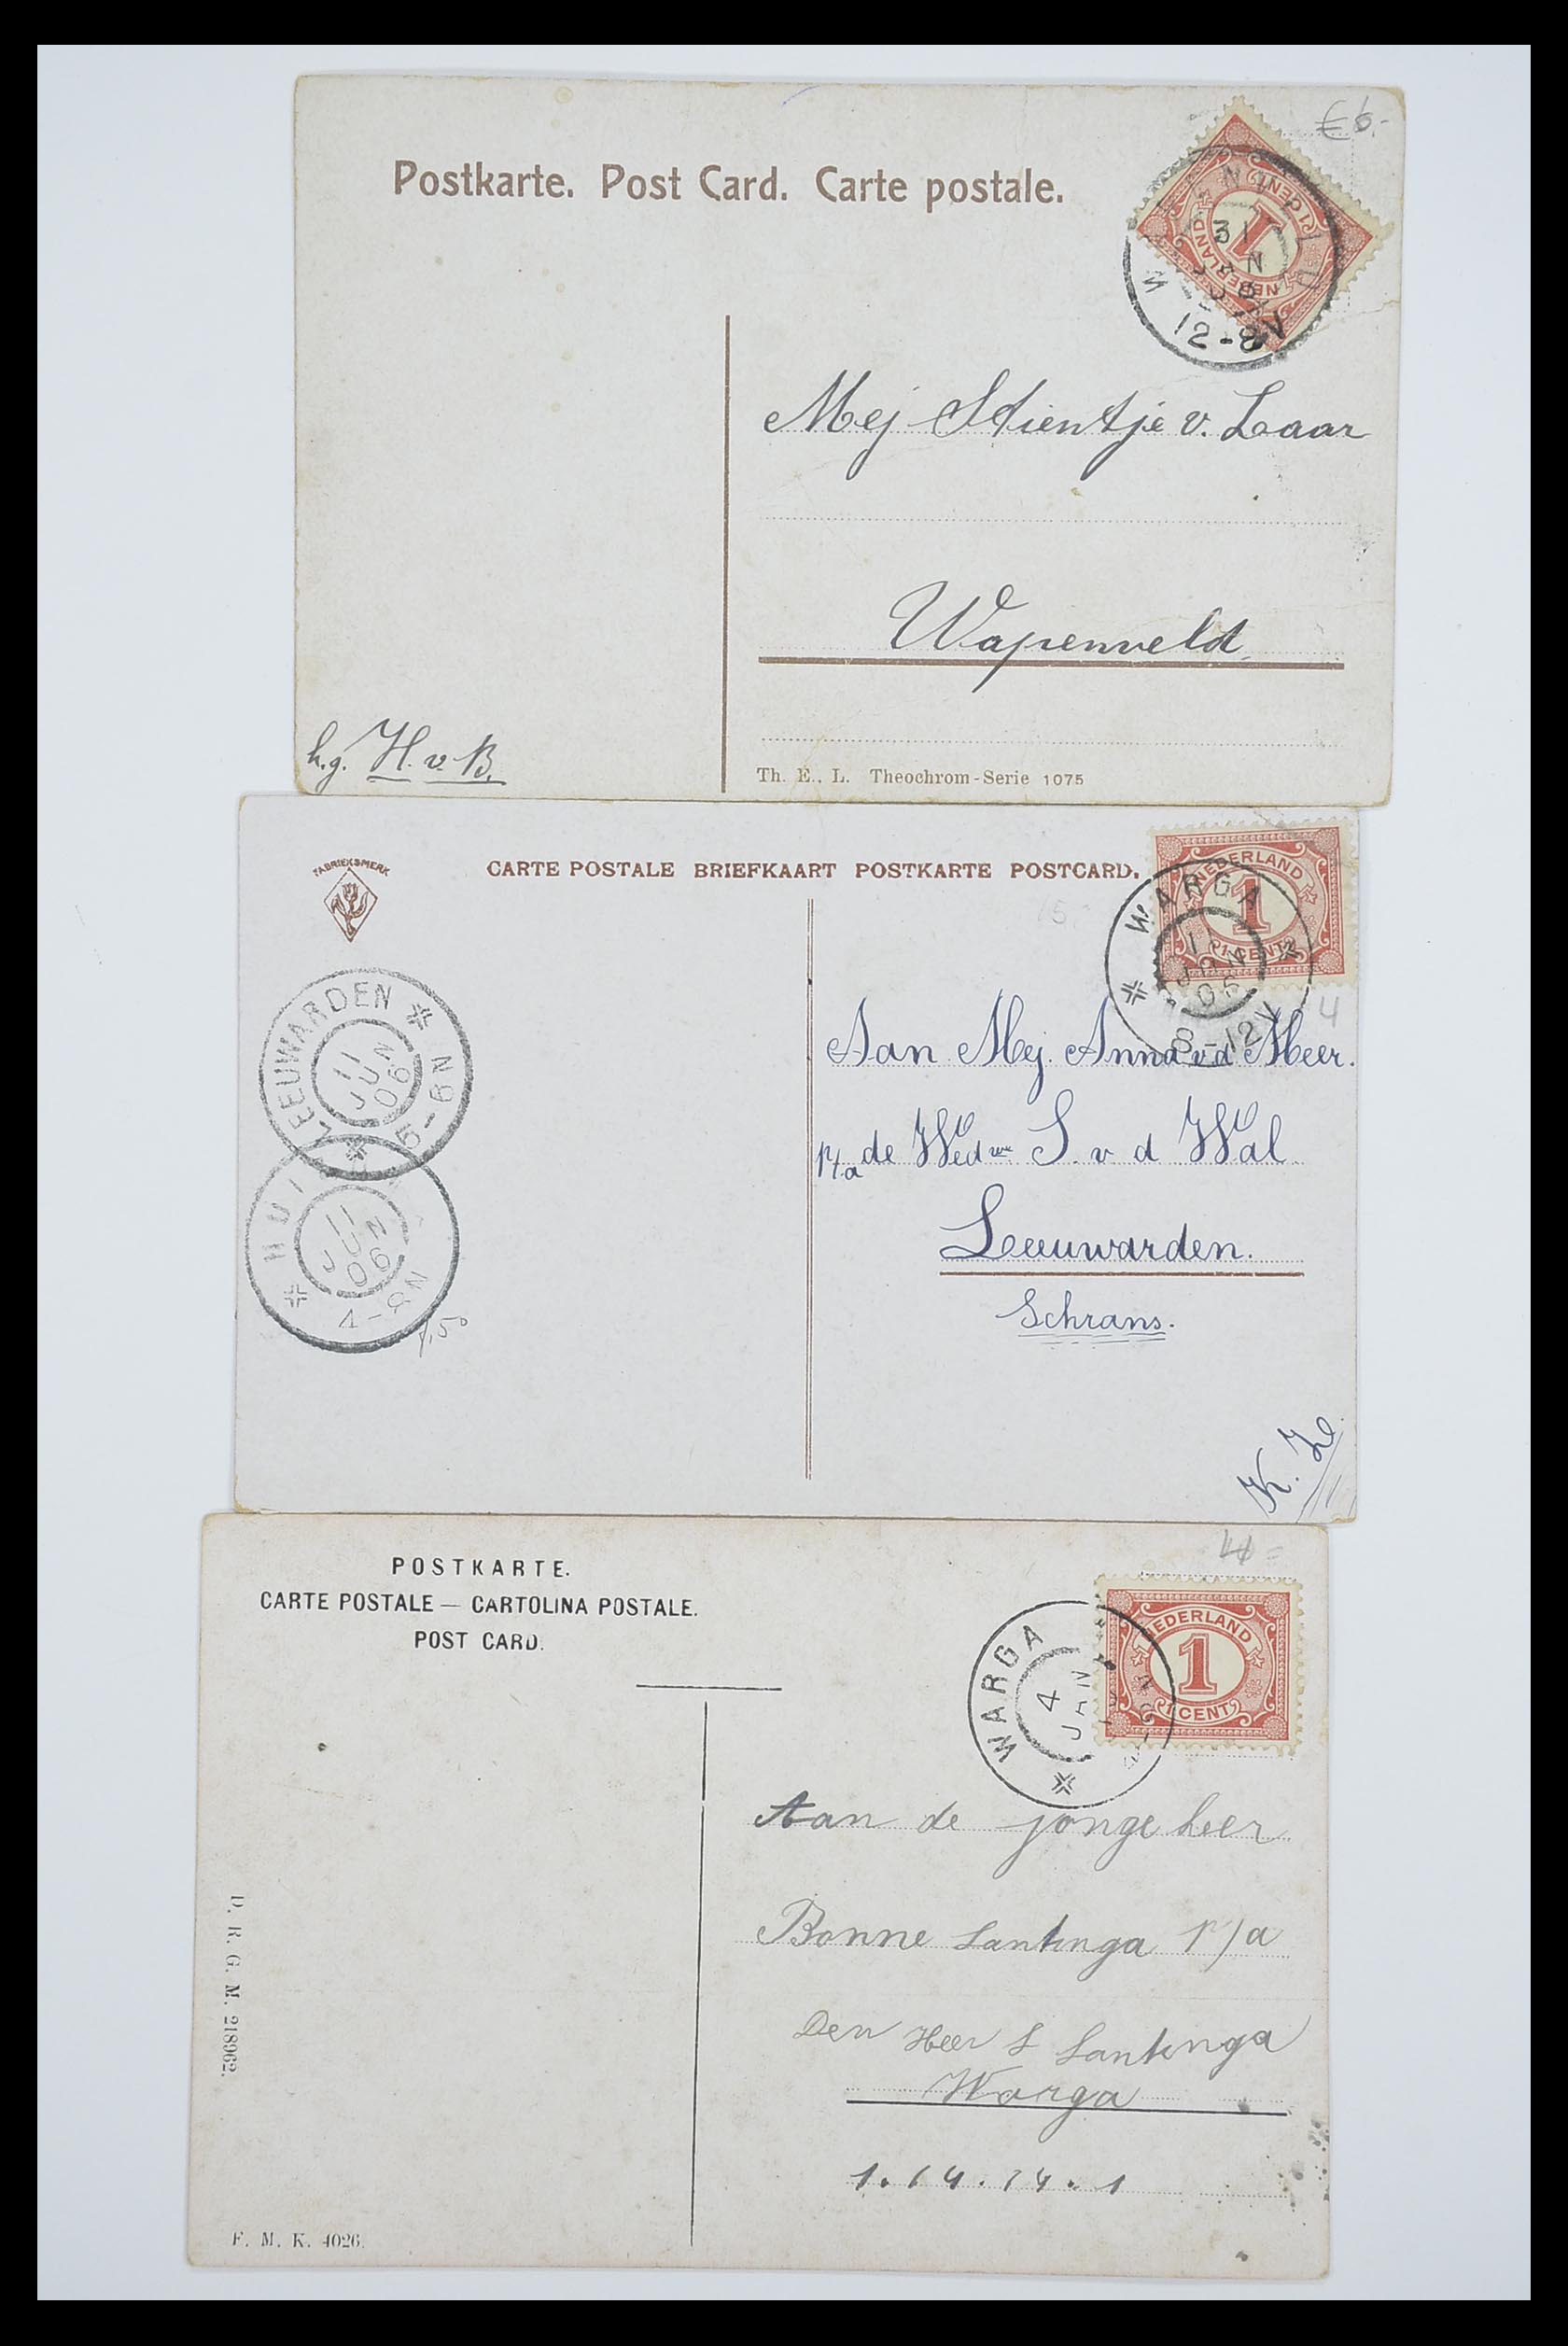 €6.-
Postkarte. Post Card. Carte postale.
NEDERLAND
1
1 CENT
31
JAN
12-8V
Mej Stientje v. Laar
Wapenveld.
h.g. H. v. B.
Th. E. L. Theochrom-Serie 1075
FABRIEKSMERK
CARTE POSTALE BRIEFKAART POSTKARTE POSTCARD.
NEDERLAND
1
1 CENT
WARGA
11
JUN
06
8-12V
4
LEEUWARDEN
11
JUN
06
5-6N
11
JUN
06
4-8N
1.50
Aan Mej. Anna v d Meer.
p/a de Wedwe S. v d Wal
Leeuwarden.
Schrans.
POSTKARTE.
CARTE POSTALE — CARTOLINA POSTALE.
POST CARD.
NEDERLAND
1
1 CENT
WARGA
4
JAN
Aan de jonge heer
Bonne Lantinga p/a
Den Heer S Lantinga
Warga
D. R. G. M. 218962.
F. M. K. 4026.